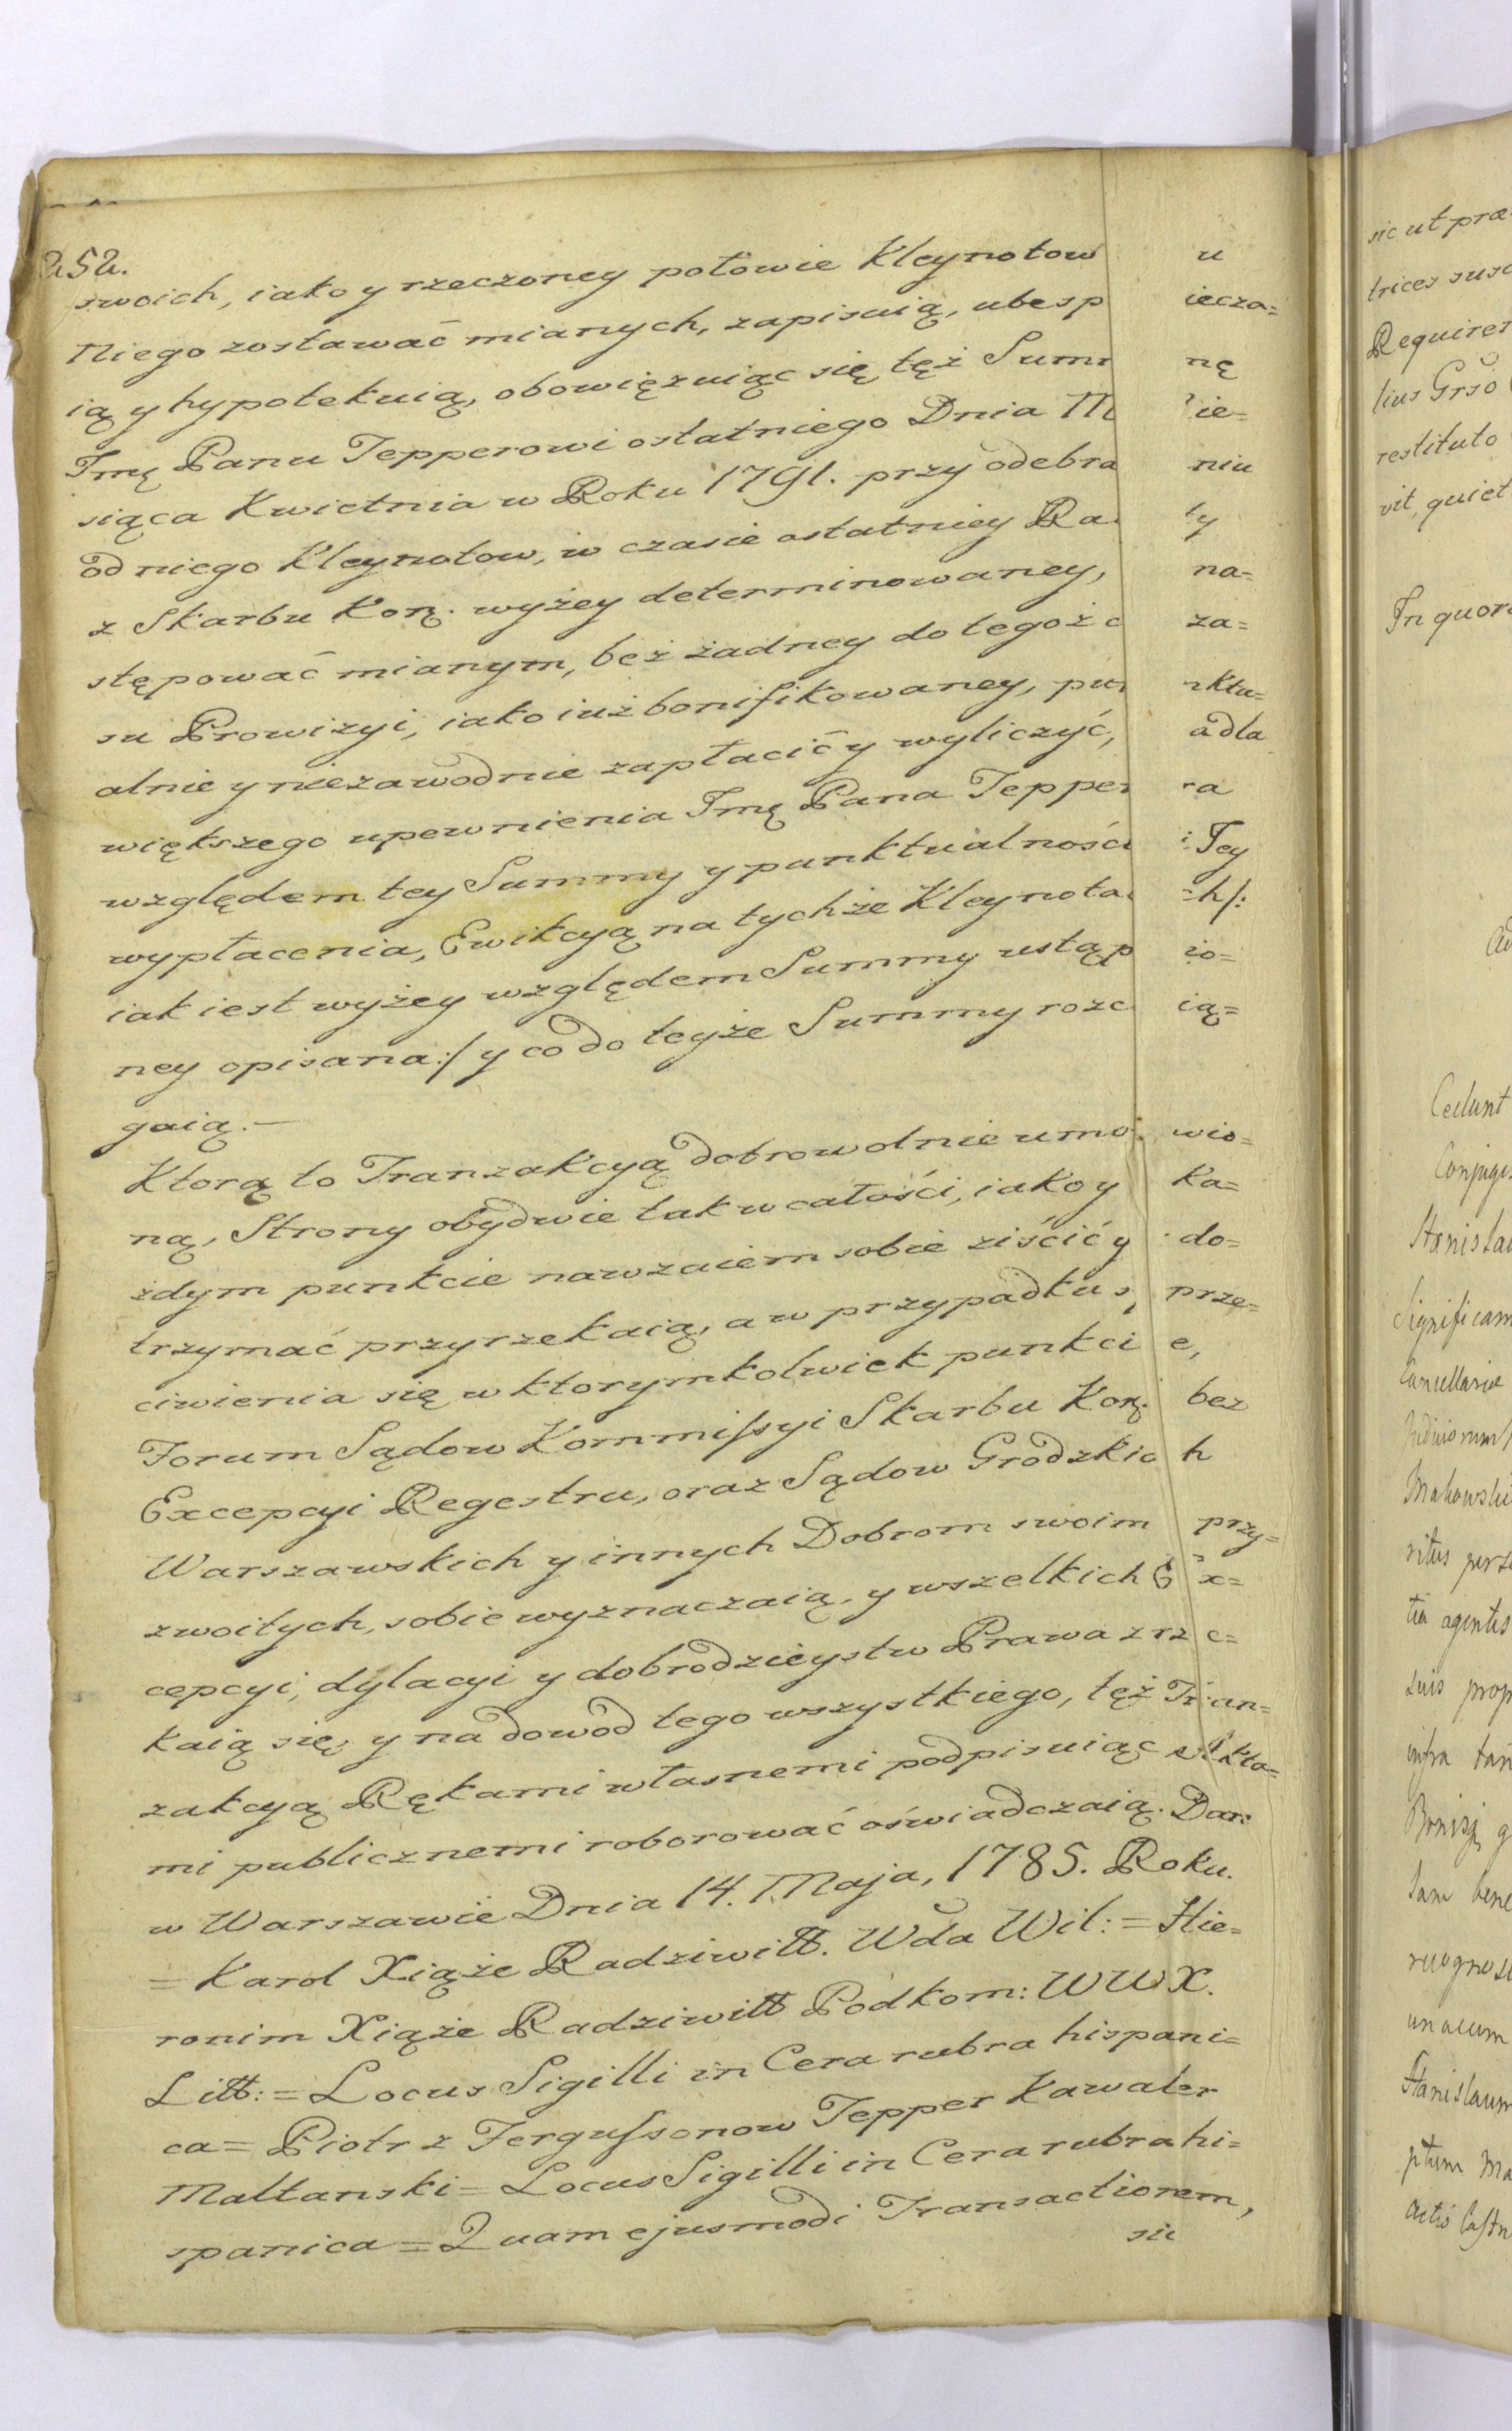 252.
swoich, iako y rzeczoney połowie Kleynotow u
Niego zostawać mianych, zapisuią, ubesp iecza=
ią y hypotekuią, obowięzuiąc się też Sum nę
Jmę Panu Tepperowi ostatniego Dnia M ie=
siąca Kwietnia w Roku 1791. przy odebra niu
od niego Kleynotow, w czasie ostatniey Ra ty
z Skarbu Koŋ. wyżey determinowaney, na=
stępować mianym, bez żadney do tegoż c za=
su Prowizyi, iako iuż bonifikowaney, pun ktu=
alnie y niezawodnie zapłacić y wyliczyć, a dla
większego upewnienia Jmę Pana Teppe ra
względem tey Summy y punktualności Jey
wypłacenia, Ewikcyą na tychże Kleynota ch/:
iak iest wyżey względem Summy ustąp io=
ney opisana:/ y co do teyże Summy rozc ią=
gaią.—
Ktorą to Tranzakcyą dobrowolnie umo wio=
ną, Strony obydwie tak w całości, iako y ka=
żdym punkcie nawzaiem sobie ziścić y do=
trzymać przyrzekaią, a w przypadku s prze=
ciwienia się w ktorymkolwiek punkci e,
Forum Sądow Kommissyi Skarbu Koŋ. bez
Excepcyi Regestru, oraz Sądow Grodzkic h
Warszawskich y innych Dobrom swoim przy=
zwoitych, sobie wyznaczaią, y wszelkich E x=
cepcyi, dylacyi y dobrodzieystw Prawa zrz e=
kaią się, y na dowod tego wszystkiego, też Tran=
zakcyą Rękami własnemi podpisuiąc Akta=
mi publicznemi roborować oświadczaią. Dan:
w Warszawie Dnia 14. Maja, 1785. Roku.
= Karol Xiąże Radziwiłł. Wda Wil: = Hie=
ronim Xiąże Radziwiłł Podkom: W W X.
Litt: = Locus Sigilli in Cera rubra hispani=
ca = Piotr z Fergussonow Tepper Kawaler
Maltanski = Locus Sigilli in Cera rubra hi=
spanica = Quam ejusmodi Transactionem,
sic
sic ut præ
trices susc
Requiren
lius Grso
restituto
vit, quiet
In quor
Cedunt
Conjug
Stanisla
Significam
Cancellariæ
Makowski
ritus pers
tia agentis
suis prop
infra
tam bene
recognos
unacum
Stanislaum
ptum Ma
Actis Castr